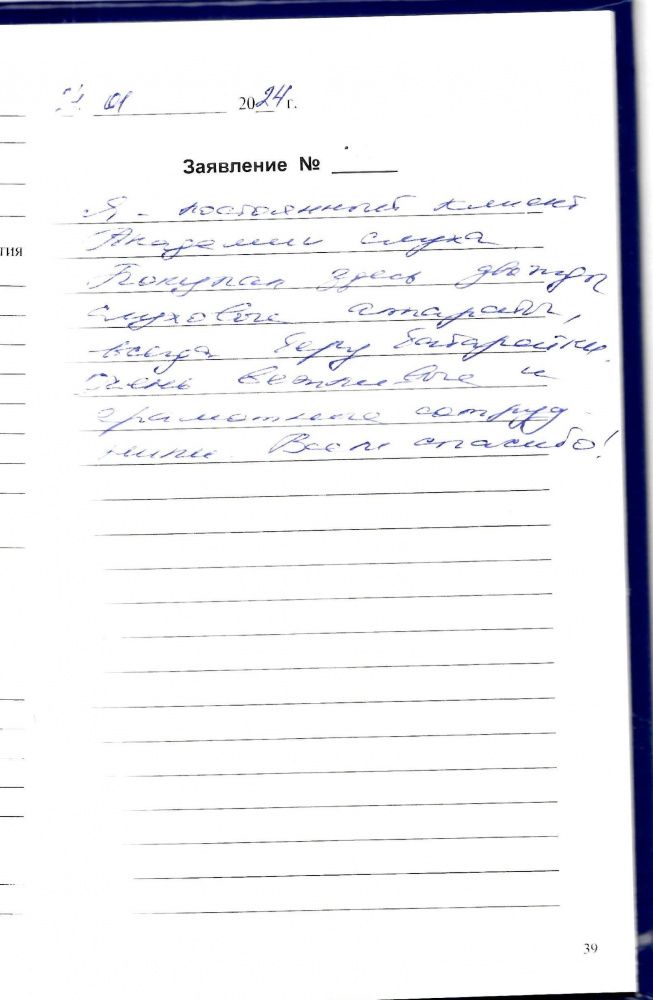 01 2024 г.
Заявление № ______
Я - постоянный клиент
Академии слуха.
тия
Покупал здесь дважды
слуховые аппараты,
всегда беру батарейки.
Очень вежливые и
грамотные сотруд-
ники. Всем спасибо!
39